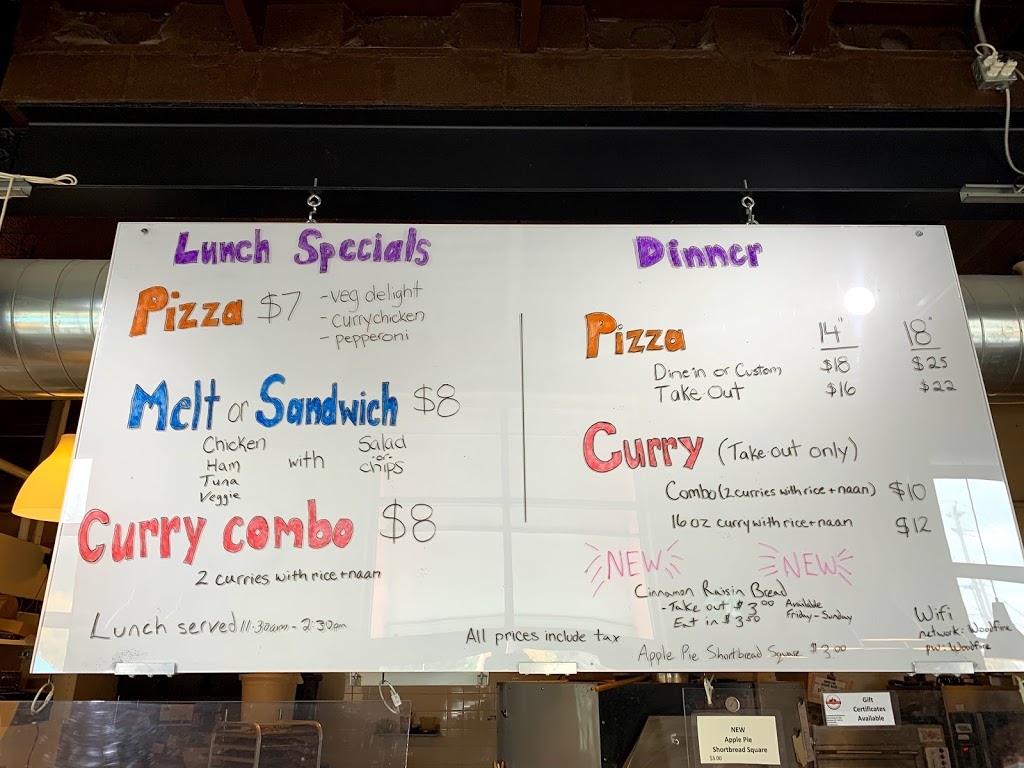 Lunch Specials
Pizza $7
- veg delight
- curry chicken
- pepperoni
Melt or Sandwich $8
Chicken
Ham
Tuna
Veggie
with
Salad
-or-
chips
Curry combo $8
2 curries with rice + naan
Lunch served 11:30am - 2:30pm
All prices include tax
Dinner
Pizza 14" 18"
Dine in or Custom $18 $25
Take-Out $16 $22
Curry (Take-out only)
Combo (2 curries with rice + naan) $10
16 oz curry with rice + naan $12
NEW NEW
Cinnamon Raisin Bread
- Take out $3.00
Eat in $3.50
Available
Friday - Sunday
Apple Pie Shortbread Square $3.00
Wifi
network: Woodfire
pw: Woodfire
NEW
Apple Pie
Shortbread Square
$3.00
Gift
Certificates
Available